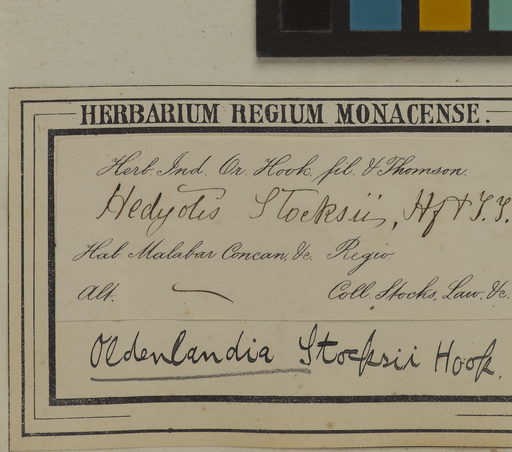 HERBARIUM REGIUM MONACENSE.
Herb. Ind. Or. Hook. fil. & Thomson.
Hedyotis Stocksii, Hf & T.T.
Hab. Malabar Concan, &c. Regio.
Alt. Coll. Stocks, Law, &c.
Oldenlandia Stocksii Hook.